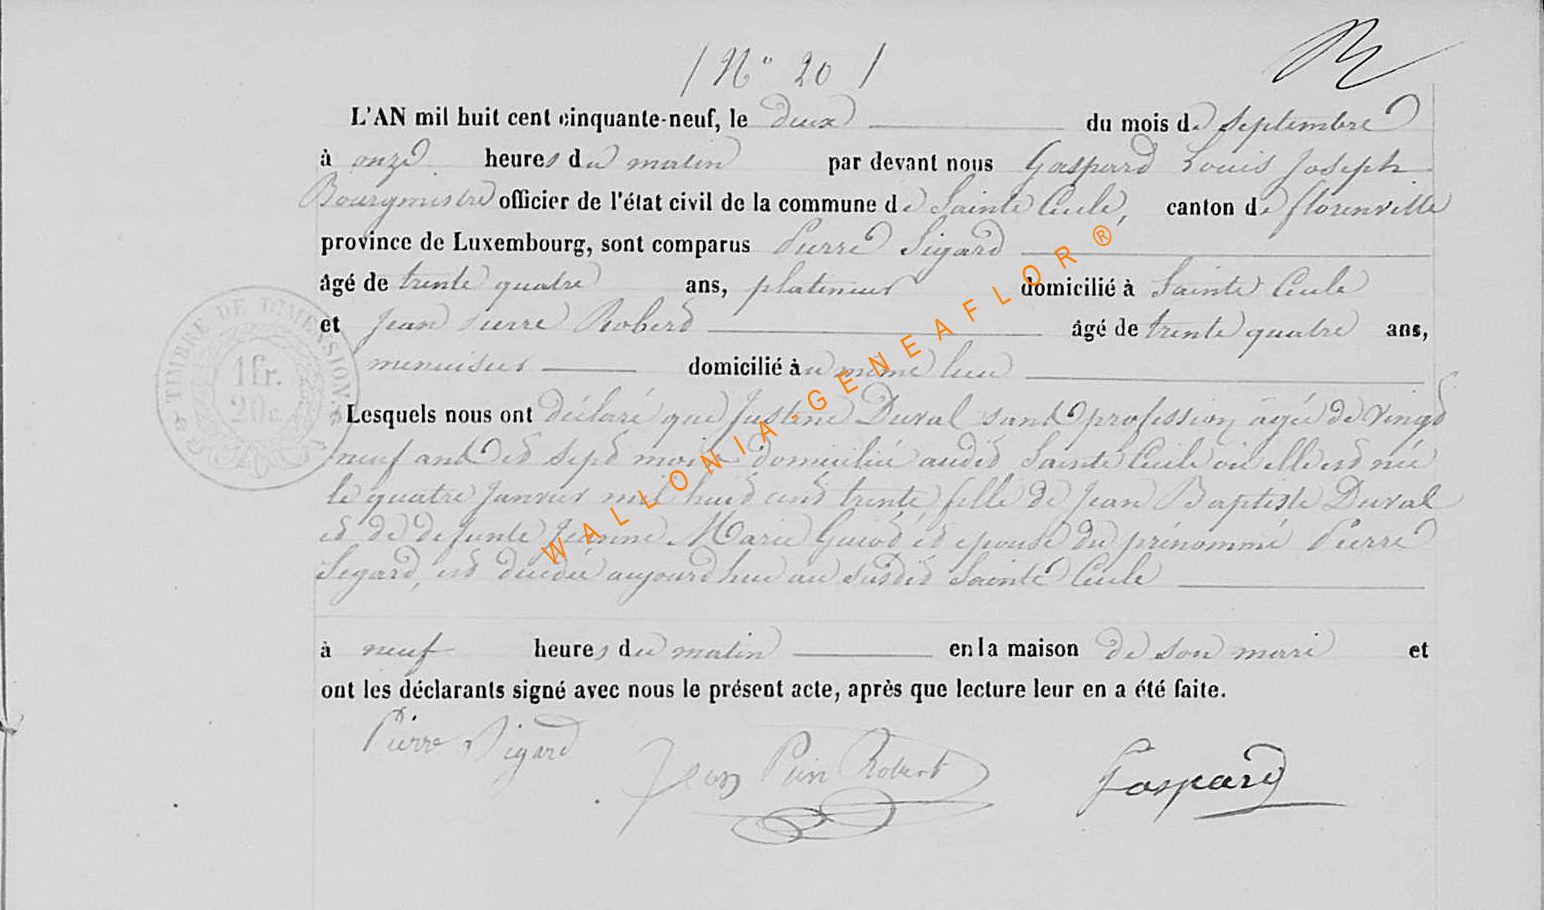 ( N° 20 )
L'AN mil huit cent cinquante-neuf, le deux du mois de septembre
à onze heures du matin par devant nous Gaspard Louis Joseph
Bourgmestre officier de l'état civil de la commune de Sainte Cecile, canton de florenville
province de Luxembourg, sont comparus Pierre Sigard
âgé de trente quatre ans, platineur domicilié à Sainte Cecile
et Jean Pierre Robert âgé de trente quatre ans,
menuisier domicilié au même lieu
Lesquels nous ont déclaré que Justine Duval sans profession agée de vingt
neuf ans et sept mois domiciliée audit Sainte Cecile où elle est née
le quatre Janvier mil huit cent trente fille de Jean Baptiste Duval
et de defunte Jeanne Marie Guiot et epouse du prénommé Pierre
Sigard, est décédée aujourd'hui au susdit Sainte Cecile
à neuf heures du matin en la maison de son mari et
ont les déclarants signé avec nous le présent acte, après que lecture leur en a été faite.
Pierre Sigard Jean Pierr Robert Gaspard
TIMBRE DE DIMENSION
1 fr.
20 c.
WALLONIA-GENEAFLOR®